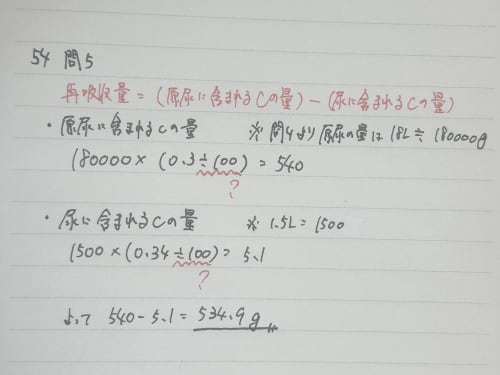 54 問5
再吸収量 = (原尿に含まれるCの量) - (尿に含まれるCの量)
・原尿に含まれるCの量 ※問4より原尿の量は 18L ≒ 180000g
180000 × (0.3 ÷ 100) = 540
?
・尿に含まれるCの量 ※ 1.5L = 1500
1500 × (0.34 ÷ 100) = 5.1
?
よって 540 - 5.1 = 534.9g